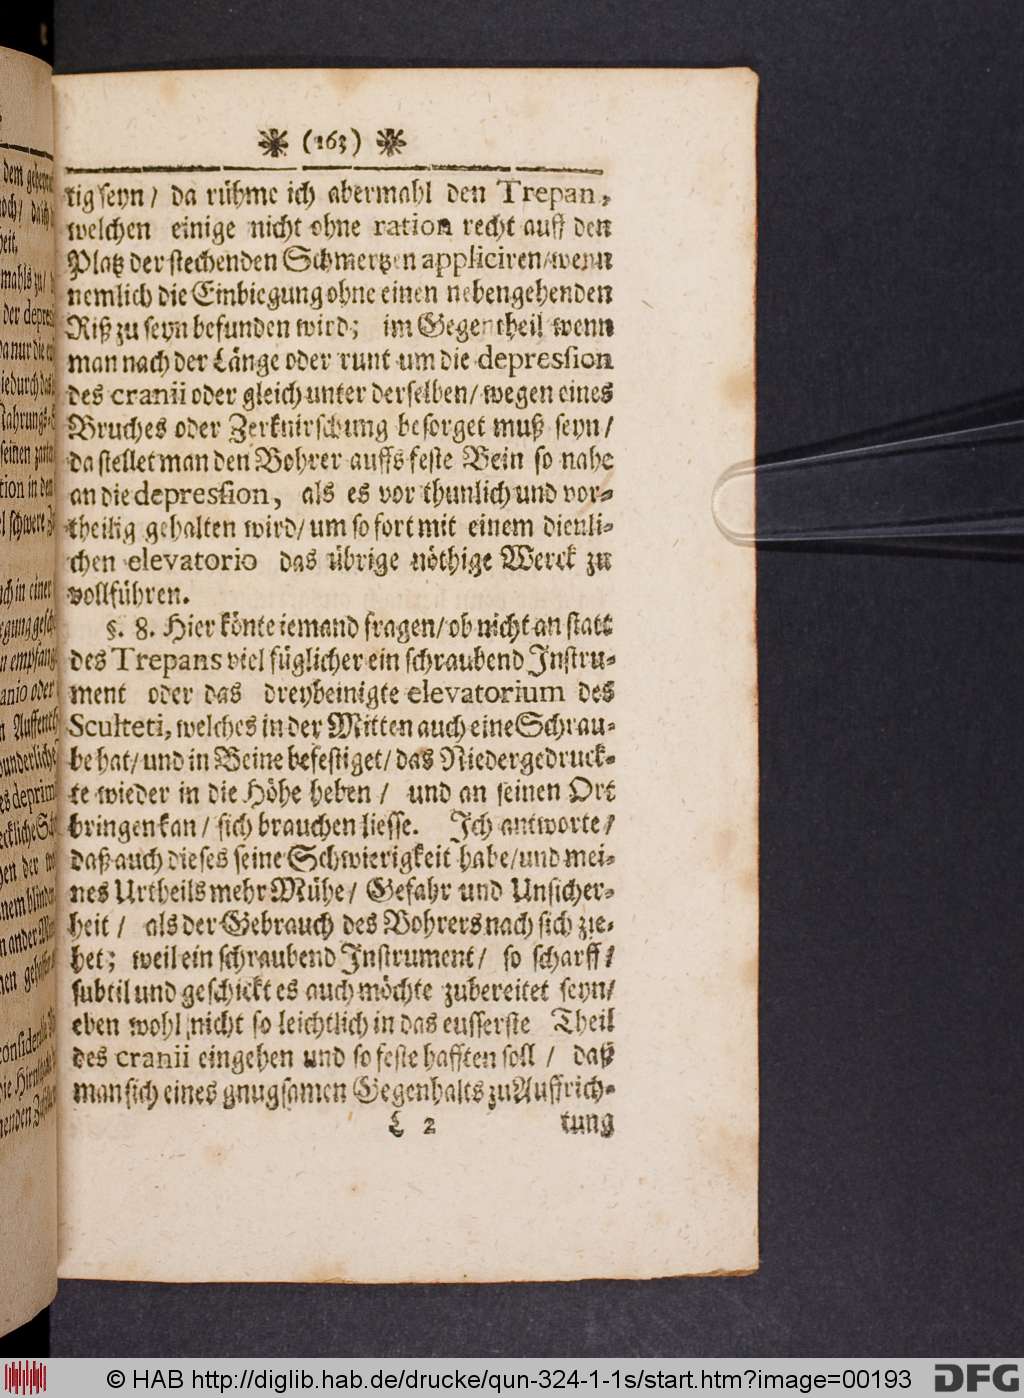 (163)
tig seyn / da rühme ich abermahl den Trepan,
welchen einige nicht ohne ration recht auff den
Platz der stechenden Schmertzen appliciren/wenn
nemlich die Einbiegung ohne einen nebengehenden
Riß zu seyn befunden wird; im Gegentheil wenn
man nach der Länge oder runt um die depression
des cranii oder gleich unter derselben/ wegen eines
Bruches oder Zerknirschung besorget muß seyn /
da stellet man den Bohrer auffs feste Bein so nahe
an die depression, als es vor thunlich und vor-
theilig gehalten wird/ um so fort mit einem dienli-
chen elevatorio das übrige nöthige Werck zu
vollführen.
§. 8. Hier könte iemand fragen/ ob nicht an statt
des Trepans viel füglicher ein schraubend Instru-
ment oder das dreybeinigte elevatorium des
Sculteti, welches in der Mitten auch eine Schrau-
be hat/ und in Beine befestiget/ das Niedergedruck-
te wieder in die Höhe heben / und an seinen Ort
bringen kan / sich brauchen liesse. Ich antworte /
daß auch dieses seine Schwierigkeit habe/und mei-
nes Urtheils mehr Mühe/ Gefahr und Unsicher-
heit / als der Gebrauch des Bohrers nach sich zie-
het; weil ein schraubend Instrument / so scharff /
subtil und geschickt es auch möchte zubereitet seyn/
eben wohl nicht so leichtlich in das eusserste Theil
des cranii eingehen und so feste hafften soll / daß
man sich eines gnugsamen Gegenhalts zu Auffrich-
L 2 tung
© HAB http://diglib.hab.de/drucke/qun-324-1-1s/start.htm?image=00193
DFG